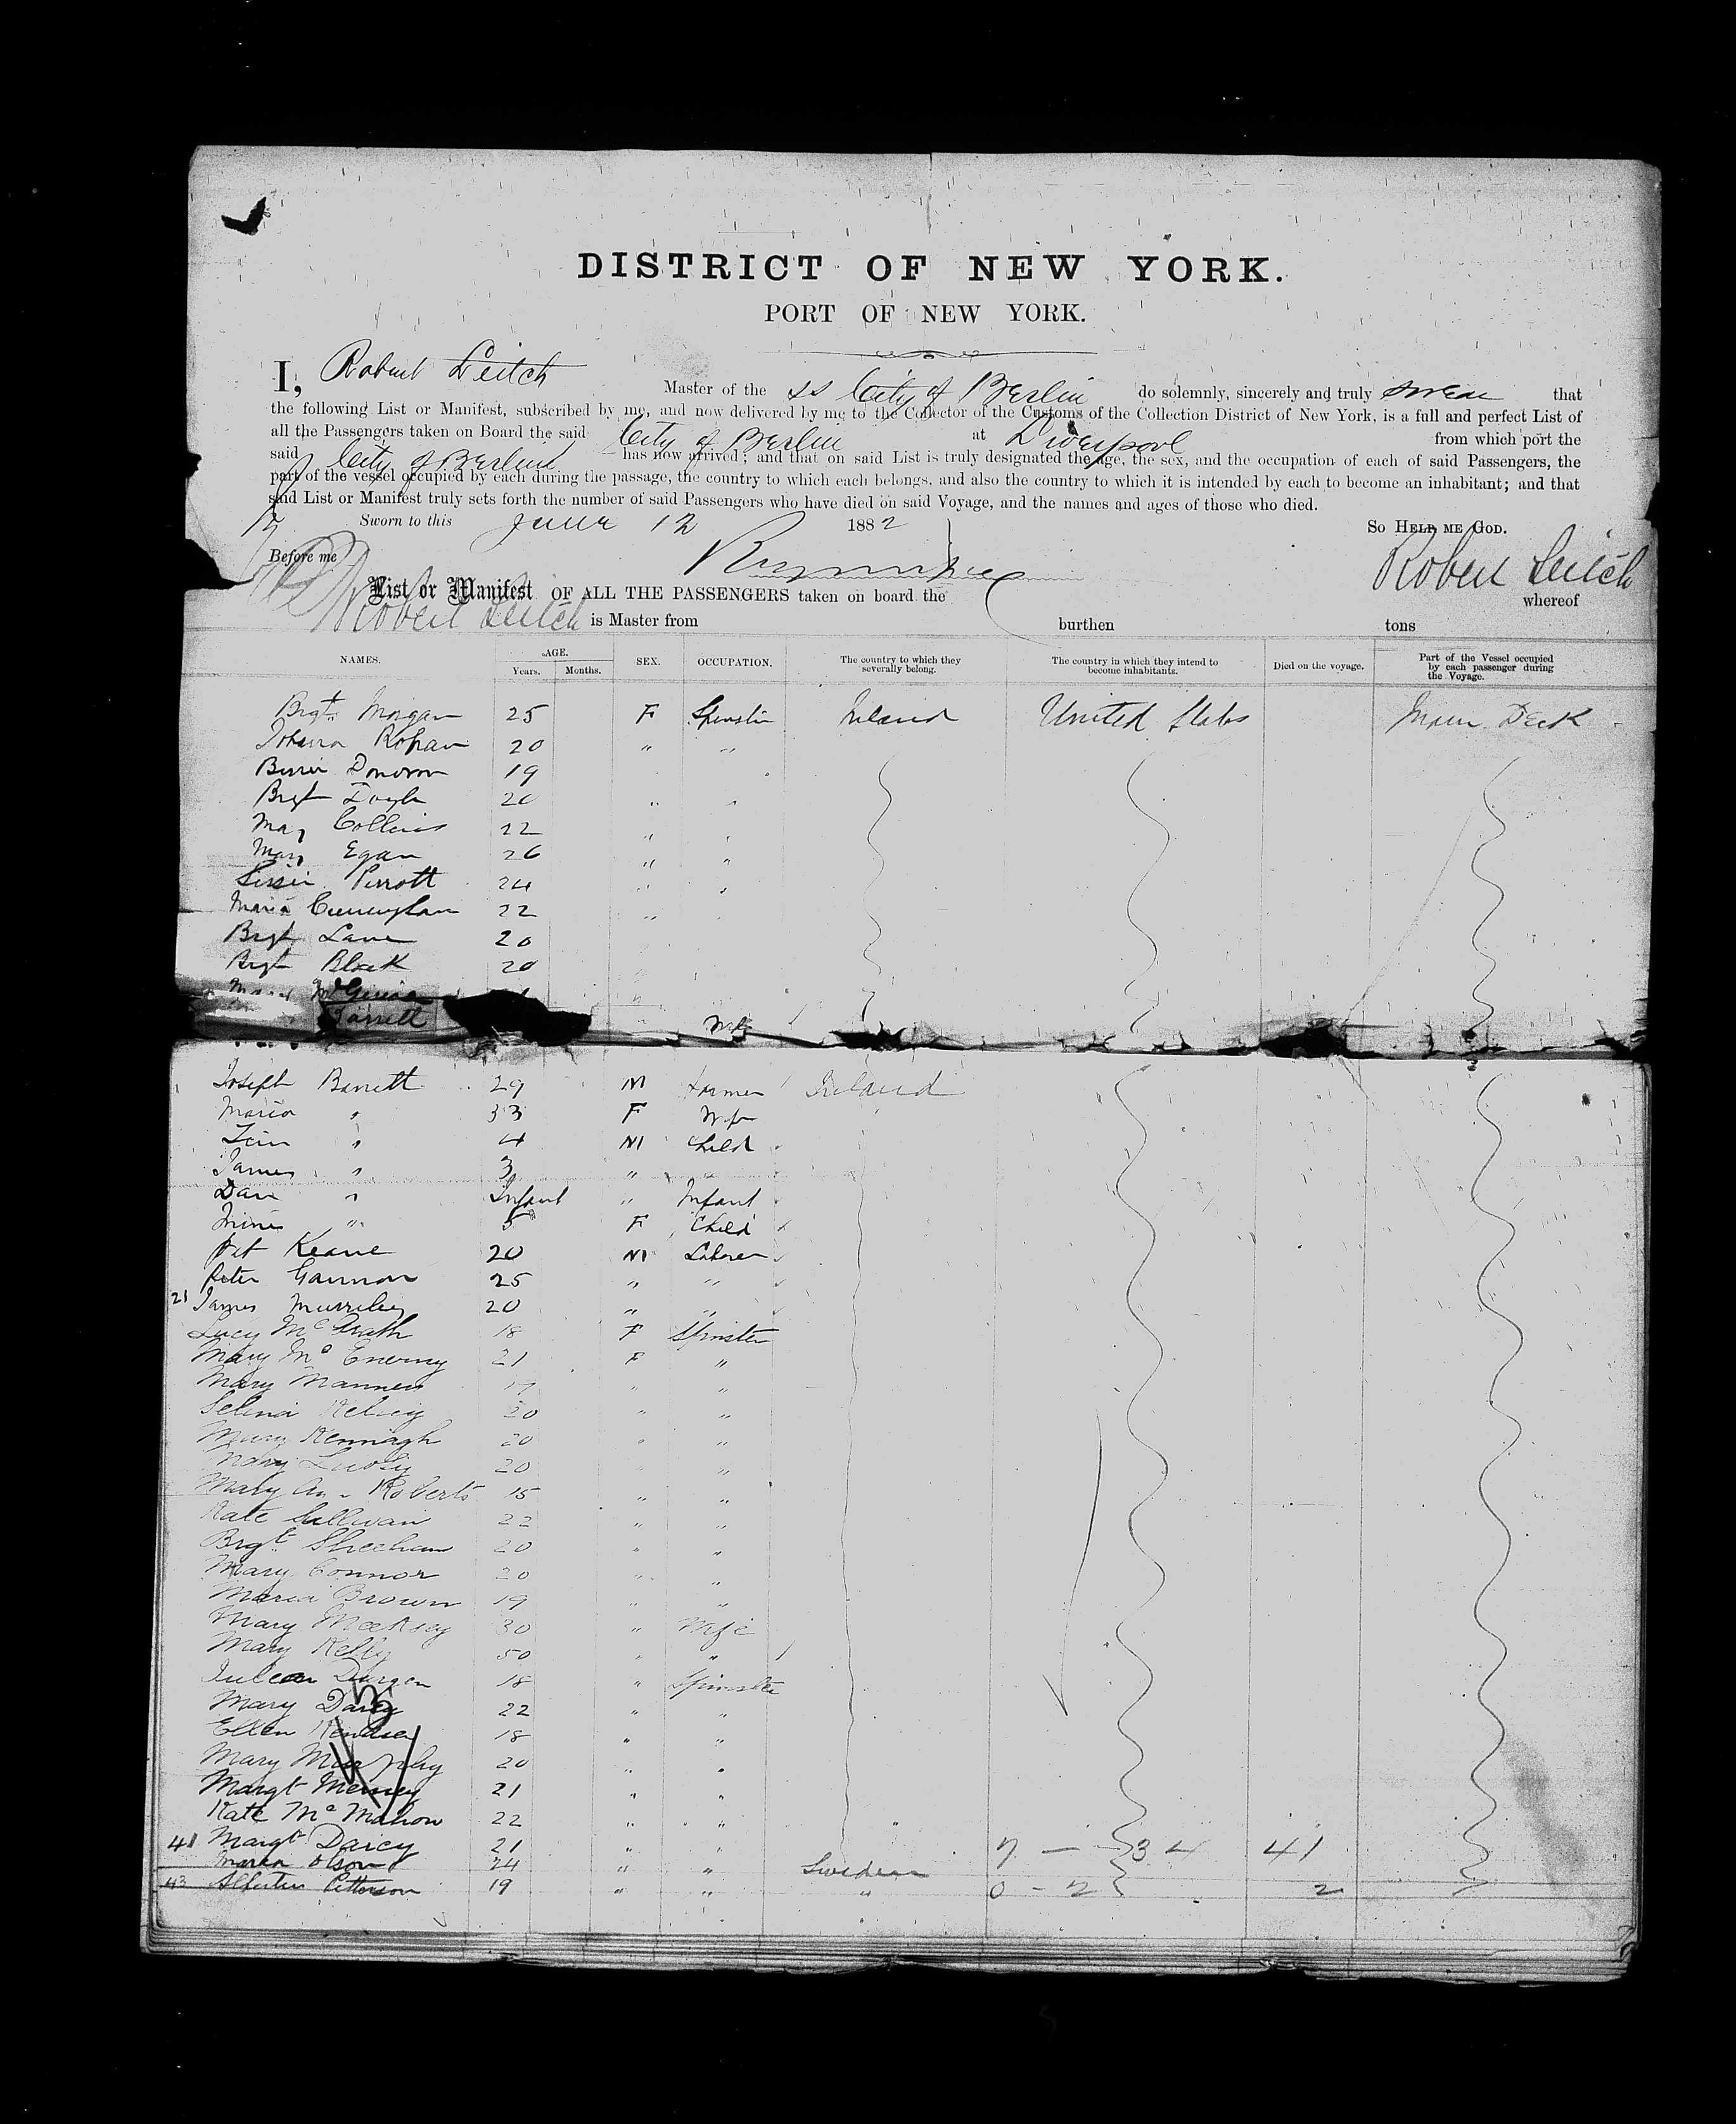 DISTRICT OF NEW YORK.
PORT OF NEW YORK.
I, Robert Leitch Master of the SS City of Berlin do solemnly, sincerely and truly swear that
the following List or Manifest, subscribed by me, and now delivered by me to the Collector of the Customs of the Collection District of New York, is a full and perfect List of
all the Passengers taken on Board the said City of Berlin at Liverpool from which port the
said City of Berlin has now arrived; and that on said List is truly designated the age, the sex, and the occupation of each of said Passengers, the
part of the vessel occupied by each during the passage, the country to which each belongs, and also the country to which it is intended by each to become an inhabitant; and that
said List or Manifest truly sets forth the number of said Passengers who have died on said Voyage, and the names and ages of those who died.
Sworn to this June 12 1882 So HELP ME GOD.
Before me Robert Leitch
List or Manifest OF ALL THE PASSENGERS taken on board the whereof
Robert Leitch is Master from burthen tons
NAMES. AGE. Years. Months. SEX. OCCUPATION. The country to which they severally belong. The country in which they intend to become inhabitants. Died on the voyage. Part of the Vessel occupied by each passenger during the Voyage.
Brgt. Morgan 25 F Spinster Ireland United States Main Deck
Johanna Rohan 20 " "
Donovan 19
Brgt Doyle 20 " "
Mary Collins 22 " "
Mary Egan 26 " "
Lizzie Perrott 24 " "
Maria Cunningham 22 "
Brgt Lane 20
Brgt Black 20
Barrett Wife
Joseph Barrett 29 M Farmer Ireland
Maria " 33 F Wife
" 4 M Child
James " 3 " "
Dan " Infant " Infant
" 5 F Child
Pat Keane 20 M Laborer
Peter Gannon 25 " "
21 James 20 " "
Lucy McGrath 18 F Spinster
Mary McEnerny 21 F "
Mary " "
Selina 20 " "
Mary Kennagh 20 " "
Mary 20 "
Mary An Roberts 15 " "
Kate Sullivan 22 " "
Brgt Sheehan 20 " "
Mary Connor 20 " "
Maria Brown 19 " "
Mary 30 " Wife
Mary Kelly 50 " "
Durgan 18 " Spinster
Mary Darcy 22 " "
Ellen 18 " "
Mary Murphy 20 " "
Margt 21 " "
Kate McMahon 22 " " "
41 Margt Darcy 21 " " 7 - 34 41
Maria Olson 24 " " Sweden
43 Pettersson 19 " " " 0 - 2 2